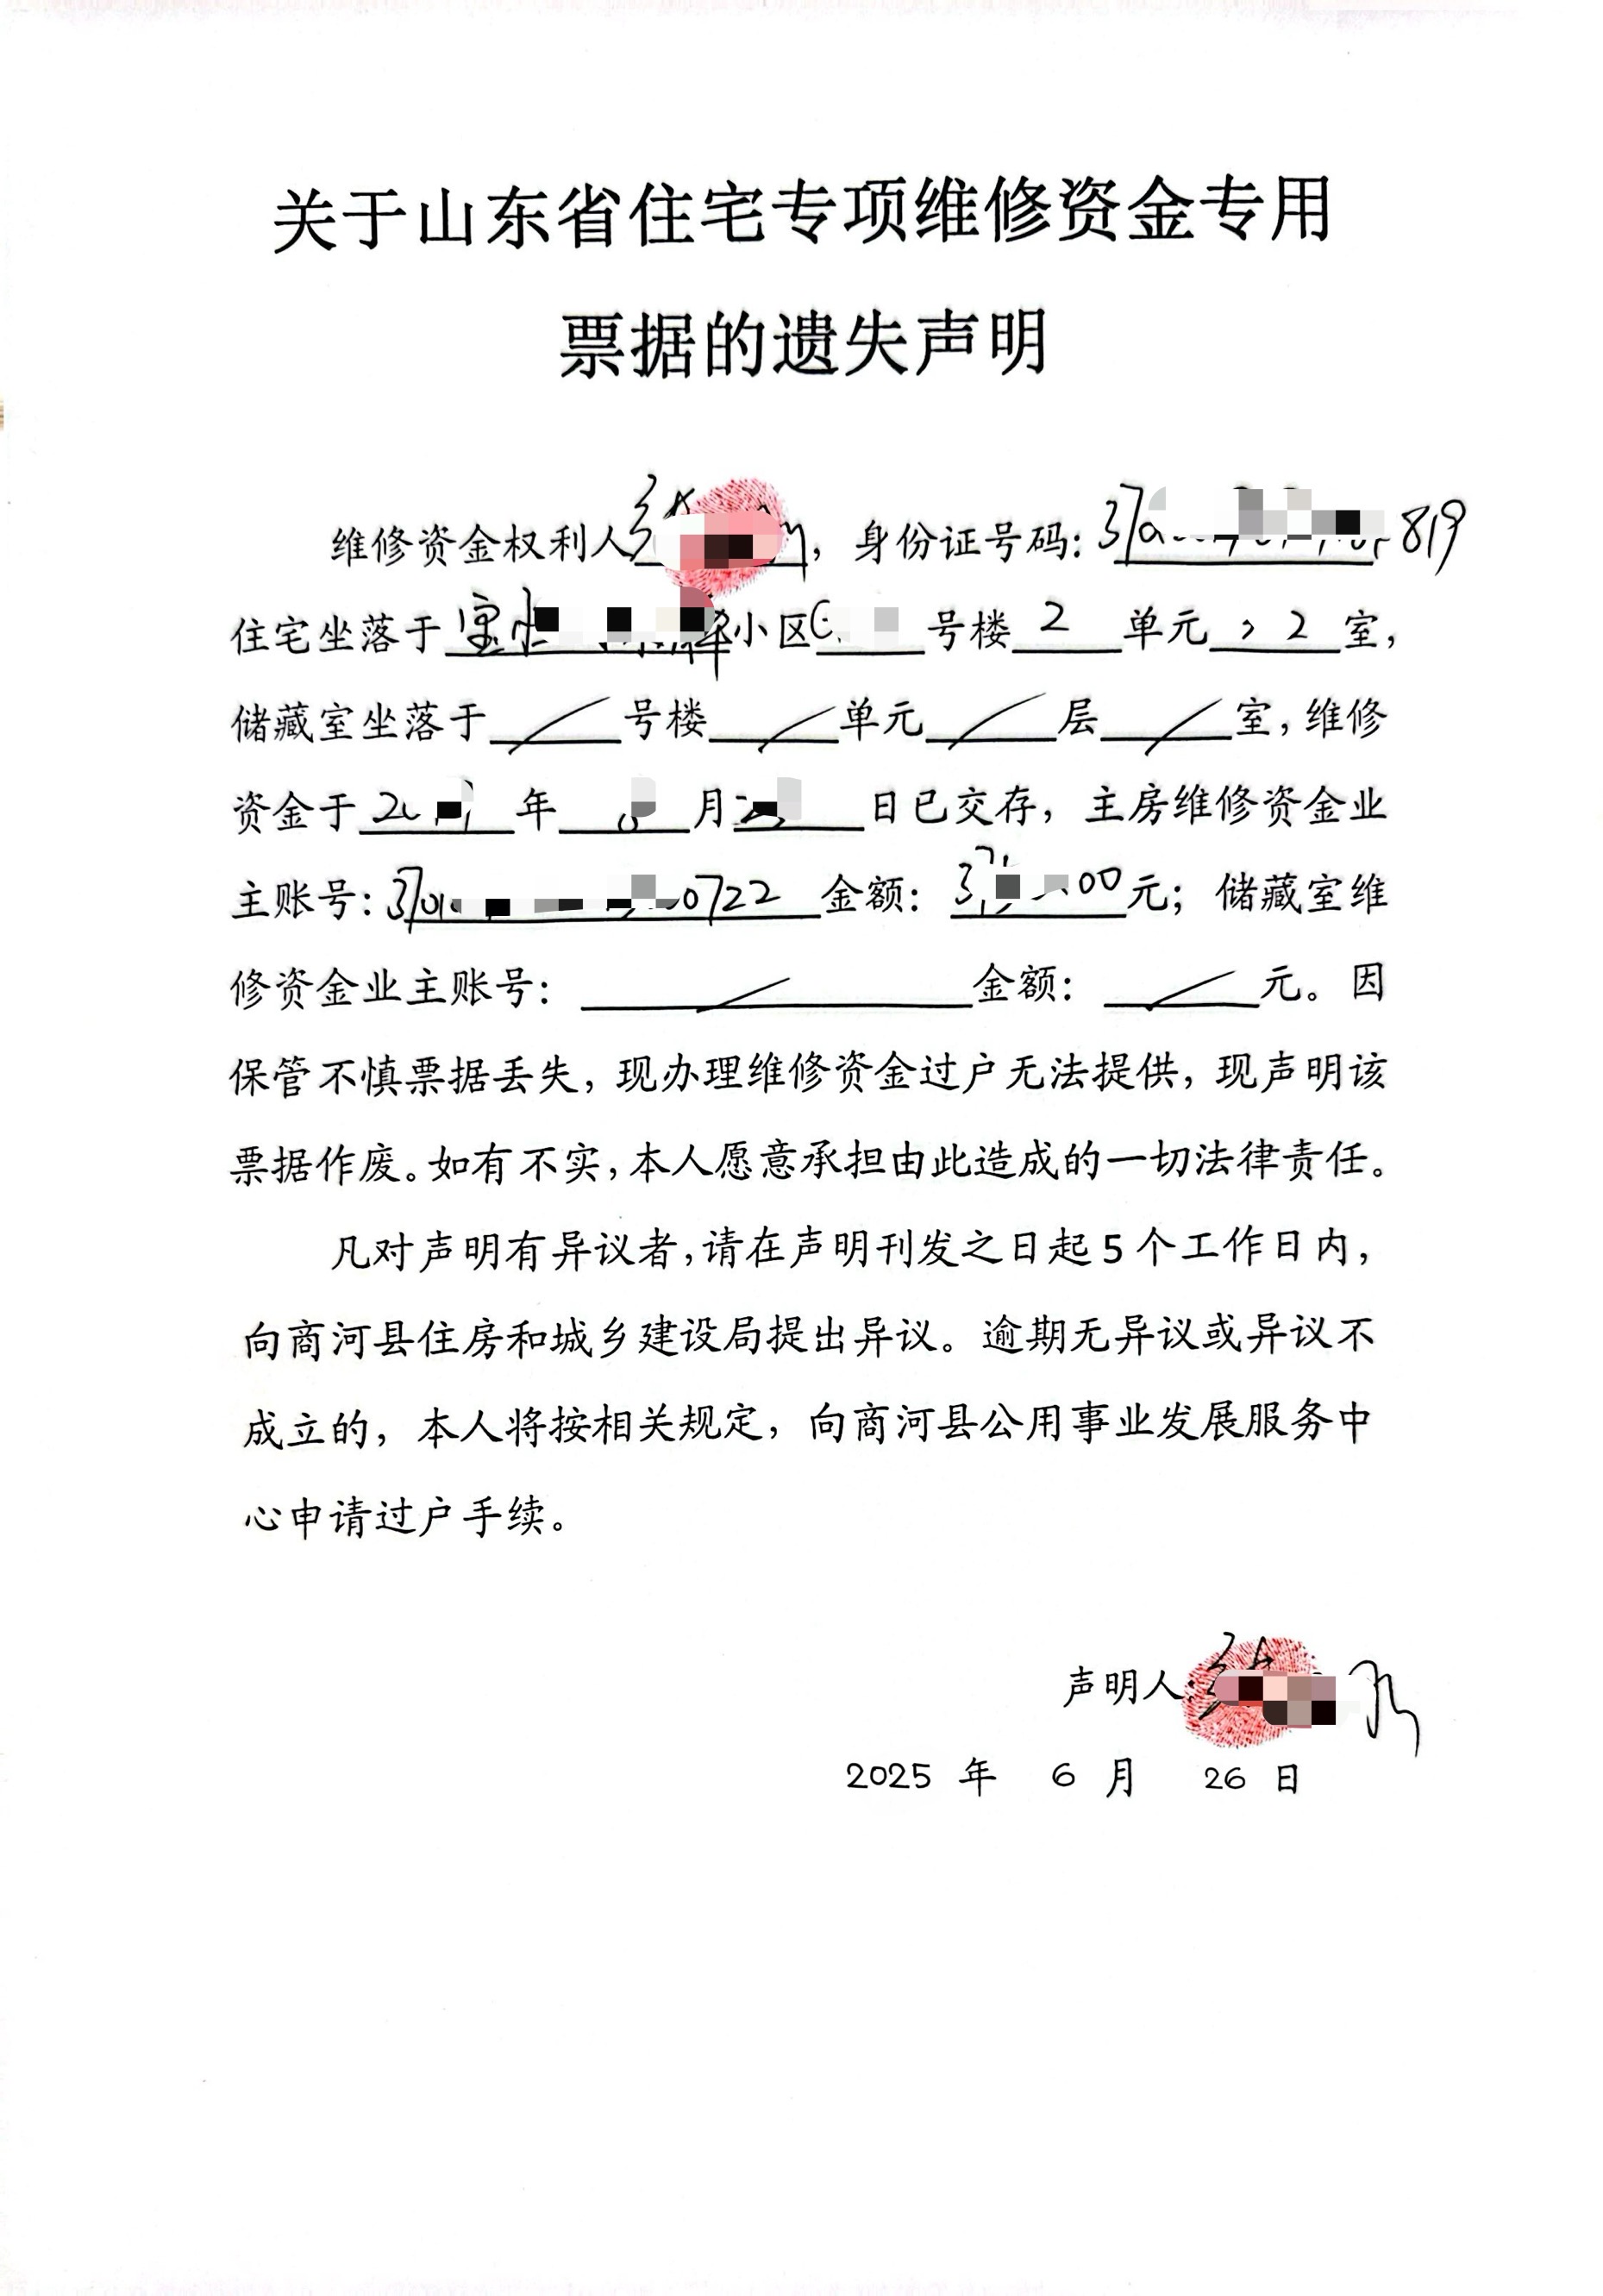 关于山东省住宅专项维修资金专用
票据的遗失声明
维修资金权利人 ，身份证号码：37 819
住宅坐落于 小区 号楼 2 单元 2 室，
储藏室坐落于 / 号楼 / 单元 / 层 / 室，维修
资金于 年 月 日已交存，主房维修资金业
主账号：370 0722 金额： 00元；储藏室维
修资金业主账号： / 金额： / 元。因
保管不慎票据丢失，现办理维修资金过户无法提供，现声明该
票据作废。如有不实，本人愿意承担由此造成的一切法律责任。
凡对声明有异议者，请在声明刊发之日起5个工作日内，
向商河县住房和城乡建设局提出异议。逾期无异议或异议不
成立的，本人将按相关规定，向商河县公用事业发展服务中
心申请过户手续。
声明人：
2025 年 6 月 26 日